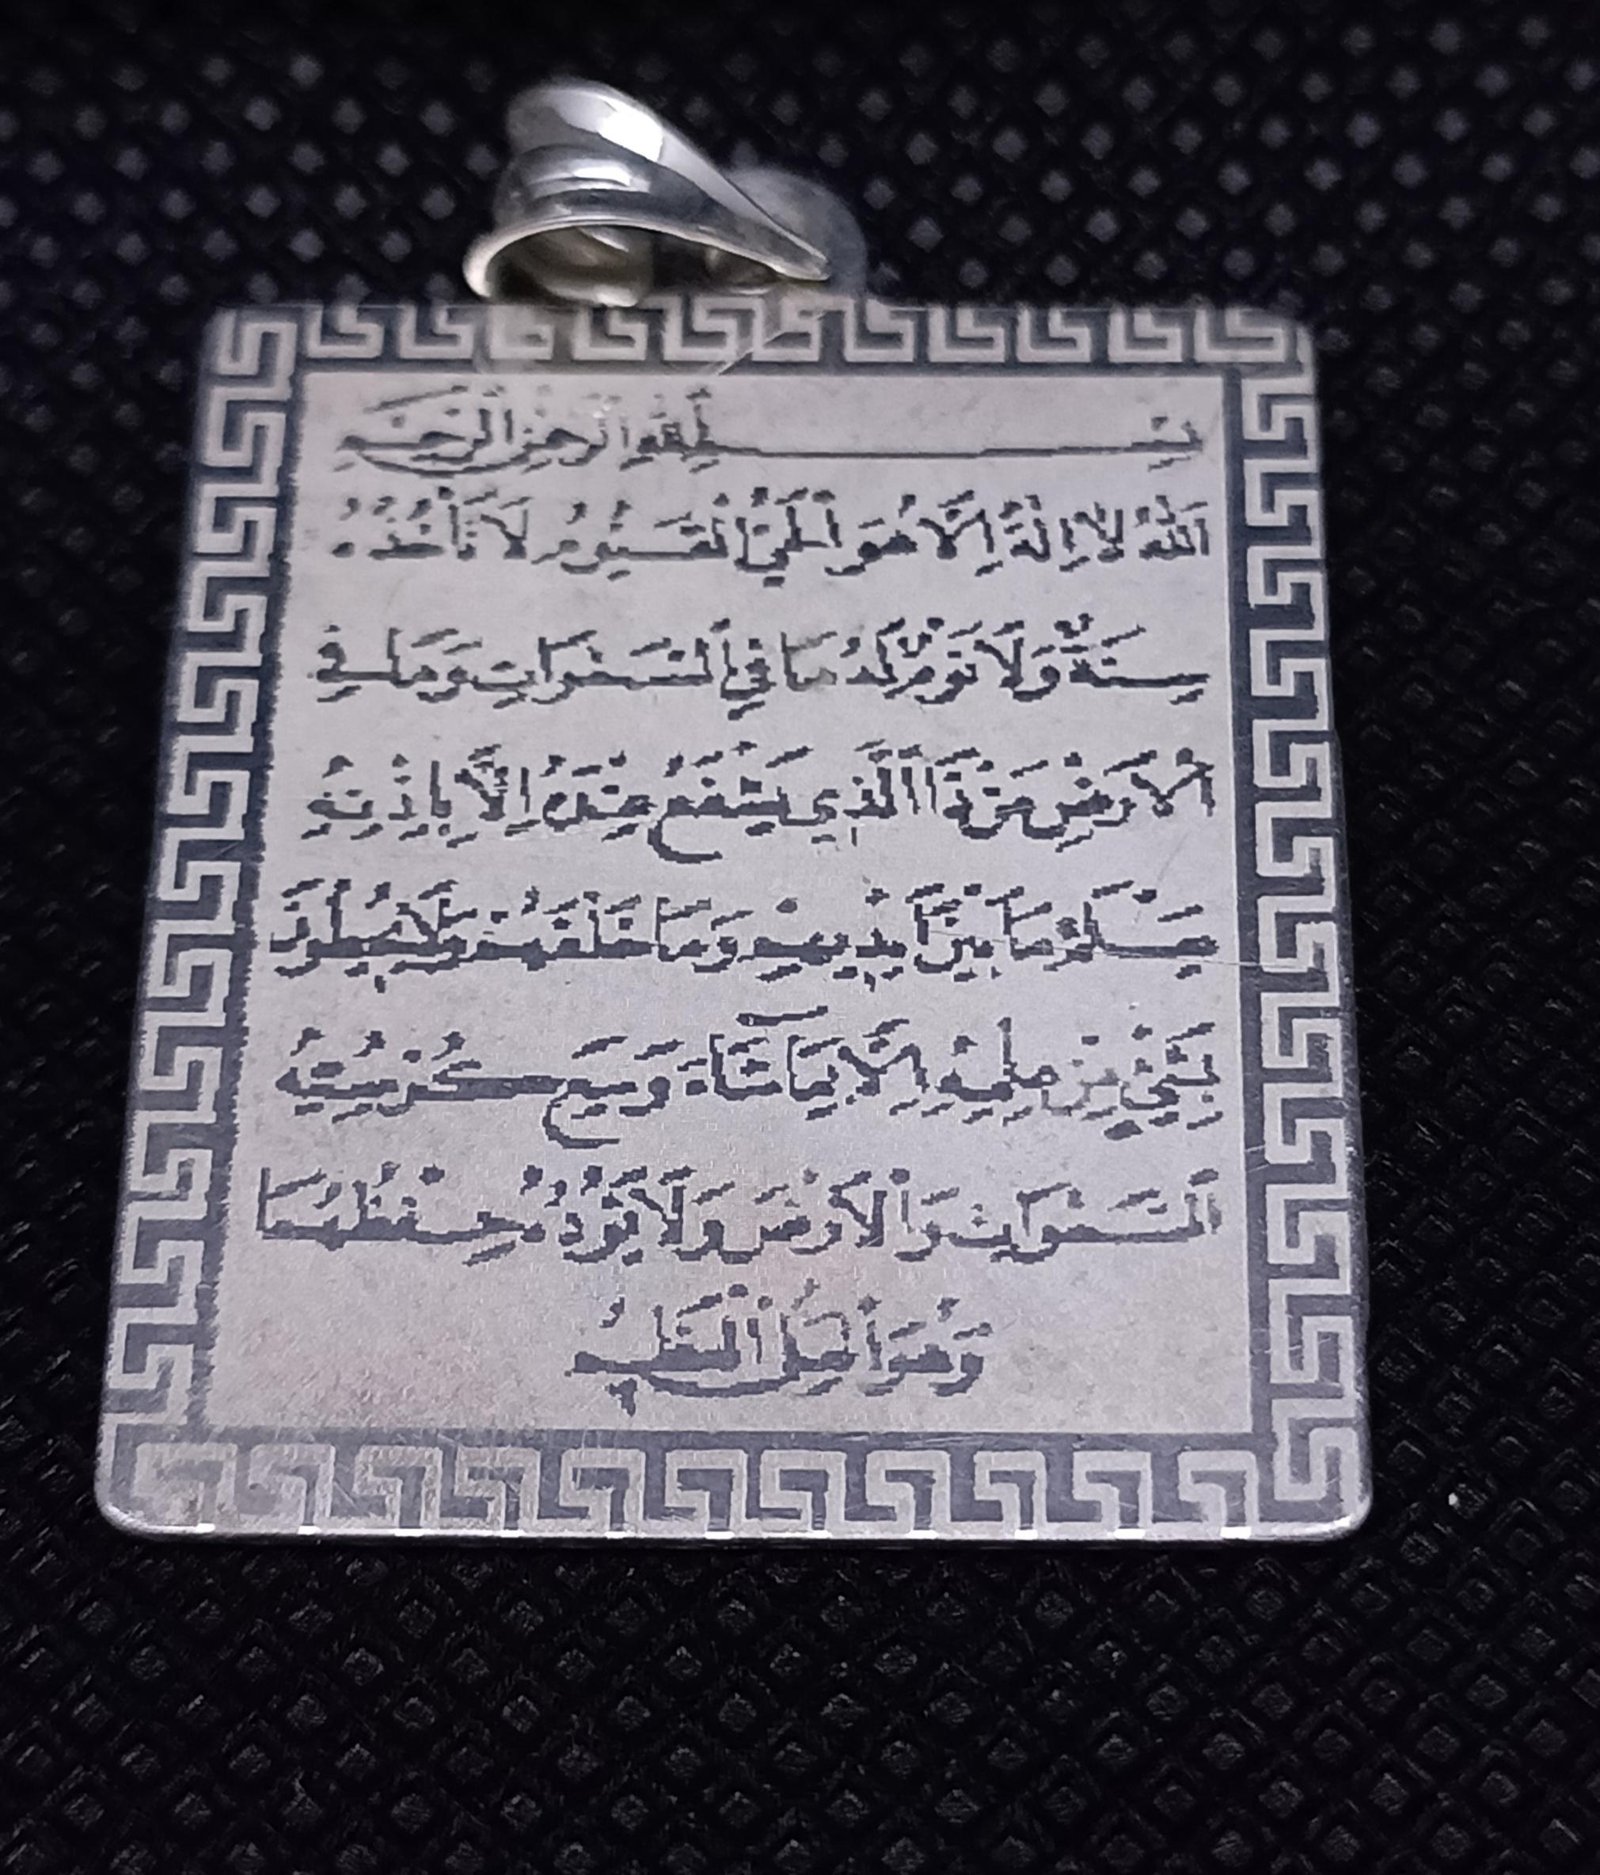 بِسْمِ اللَّهِ الرَّحْمَنِ الرَّحِيمِ
اَللهُ لَا اِلٰهَ اِلَّا هُوَ اَلْحَيُّ الْقَيُّومُ لَا تَأْخُذُهُ
سِنَةٌ وَلَا نَوْمٌ لَهُ مَا فِي السَّمَوَاتِ وَمَا فِي
الْاَرْضِ مَنْ ذَا الَّذِي يَشْفَعُ عِنْدَهُ اِلَّا بِاِذْنِهِ
يَعْلَمُ مَا بَيْنَ اَيْدِيهِمْ وَمَا خَلْفَهُمْ وَلَا يُحِيطُونَ
بِشَيْءٍ مِنْ عِلْمِهِ اِلَّا بِمَا شَاءَ وَسِعَ كُرْسِيُّهُ
السَّمَوَاتِ وَالْاَرْضَ وَلَا يَؤُدُهُ حِفْظُهُمَا
وَهُوَ الْعَلِيُّ الْعَظِيمُ